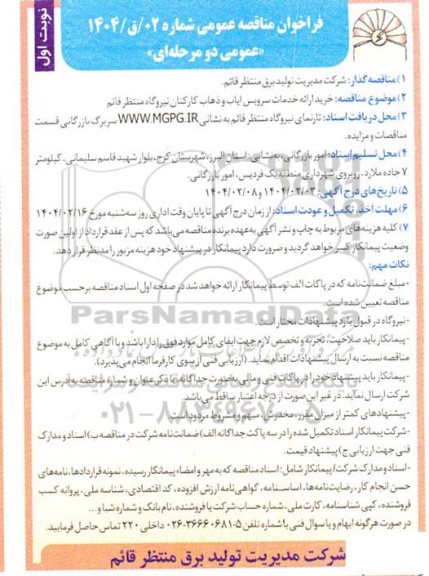 نوبت اول
فراخوان مناقصه عمومی شماره ۰۲/ق/۱۴۰۴
«عمومی دو مرحله‌ای»
۱) مناقصه گذار: شرکت مدیریت تولید برق منتظر قائم.
۲) موضوع مناقصه: خرید ارائه خدمات سرویس ایاب و ذهاب کارکنان نیروگاه منتظر قائم
۳) محل دریافت اسناد: تارنمای نیروگاه منتظر قائم به نشانی WWW.MGPG.IR سربرگ بازرگانی قسمت
مناقصات و مزایده.
۴) محل تسلیم اسناد: امور بازرگانی، به نشانی: استان البرز، شهرستان کرج، بلوار شهید قاسم سلیمانی، کیلومتر
۷ جاده ملارد، روبروی شهرداری منطقه یک فردیس، امور بازرگانی.
۵) تاریخ‌های درج آگهی: ۱۴۰۴/۰۲/۰۳ و ۱۴۰۴/۰۲/۰۸
۶) مهلت اخذ، تکمیل و عودت اسناد: از زمان درج آگهی تا پایان وقت اداری روز سه‌شنبه مورخ ۱۴۰۴/۰۲/۱۶
۷) کلیه هزینه‌های مربوط به چاپ و نشر آگهی به‌عهده برنده مناقصه می‌باشد که پس از عقد قرارداد از اولین صورت
وضعیت پیمانکار کسر خواهد گردید و ضرورت دارد پیمانکار در پیشنهاد خود هزینه مزبور را مدنظر قرار دهد.
نکات مهم:
- مبلغ ضمانت‌نامه که در پاکات الف توسط پیمانکار ارائه خواهد شد در صفحه اول اسناد مناقصه برحسب موضوع
مناقصه تعیین شده است.
- نیروگاه در قبول یا رد پیشنهادات مختار است.
- پیمانکار باید صلاحیت، تجربه و تخصص لازم جهت ایفای کامل موارد فوق را دارا باشد و با آگاهی کامل به موضوع
مناقصه نسبت به ارسال پیشنهادات اقدام نماید. (ارزیابی فنی از سوی کارفرما انجام می‌پذیرد).
- پیمانکار باید پیشنهاد خود را در پاکات فنی و مالی به‌صورت جداگانه با ذکر عنوان و شماره مناقصه به آدرس این
شرکت ارسال نماید. در غیر این صورت از درجه اعتبار ساقط می‌باشد.
- پیشنهادهای کمتر از میزان مقرر، مخدوش، مبهم و مشروط مردود است.
- شرکت پیمانکار اسناد تکمیل شده را در سه پاکت جداگانه الف) ضمانت‌نامه شرکت در مناقصه ب) اسناد و مدارک
فنی جهت ارزیابی ج) پیشنهاد قیمت.
- اسناد و مدارک شرکت/پیمانکار شامل: اسناد مناقصه که به مهر و امضاء پیمانکار رسیده، نمونه قراردادها، نامه‌های
حسن انجام کار، رضایت‌نامه‌ها، اساسنامه، گواهی‌نامه ارزش افزوده، کد اقتصادی، شناسه ملی، پروانه کسب
فروشنده، کپی شناسنامه، کارت ملی، شماره حساب شرکت یا فروشنده، نام بانک و شماره شبا و...
در صورت هرگونه ابهام و یا سوال فنی با شماره تلفن ۵-۰۲۶-۳۶۶۶۰۶۸۱ داخلی ۲۲۰ تماس حاصل فرمایید.
شرکت مدیریت تولید برق منتظر قائم
ParsNamadData
۰۲۱-۸۸۳۴۹۶۷۰-۵